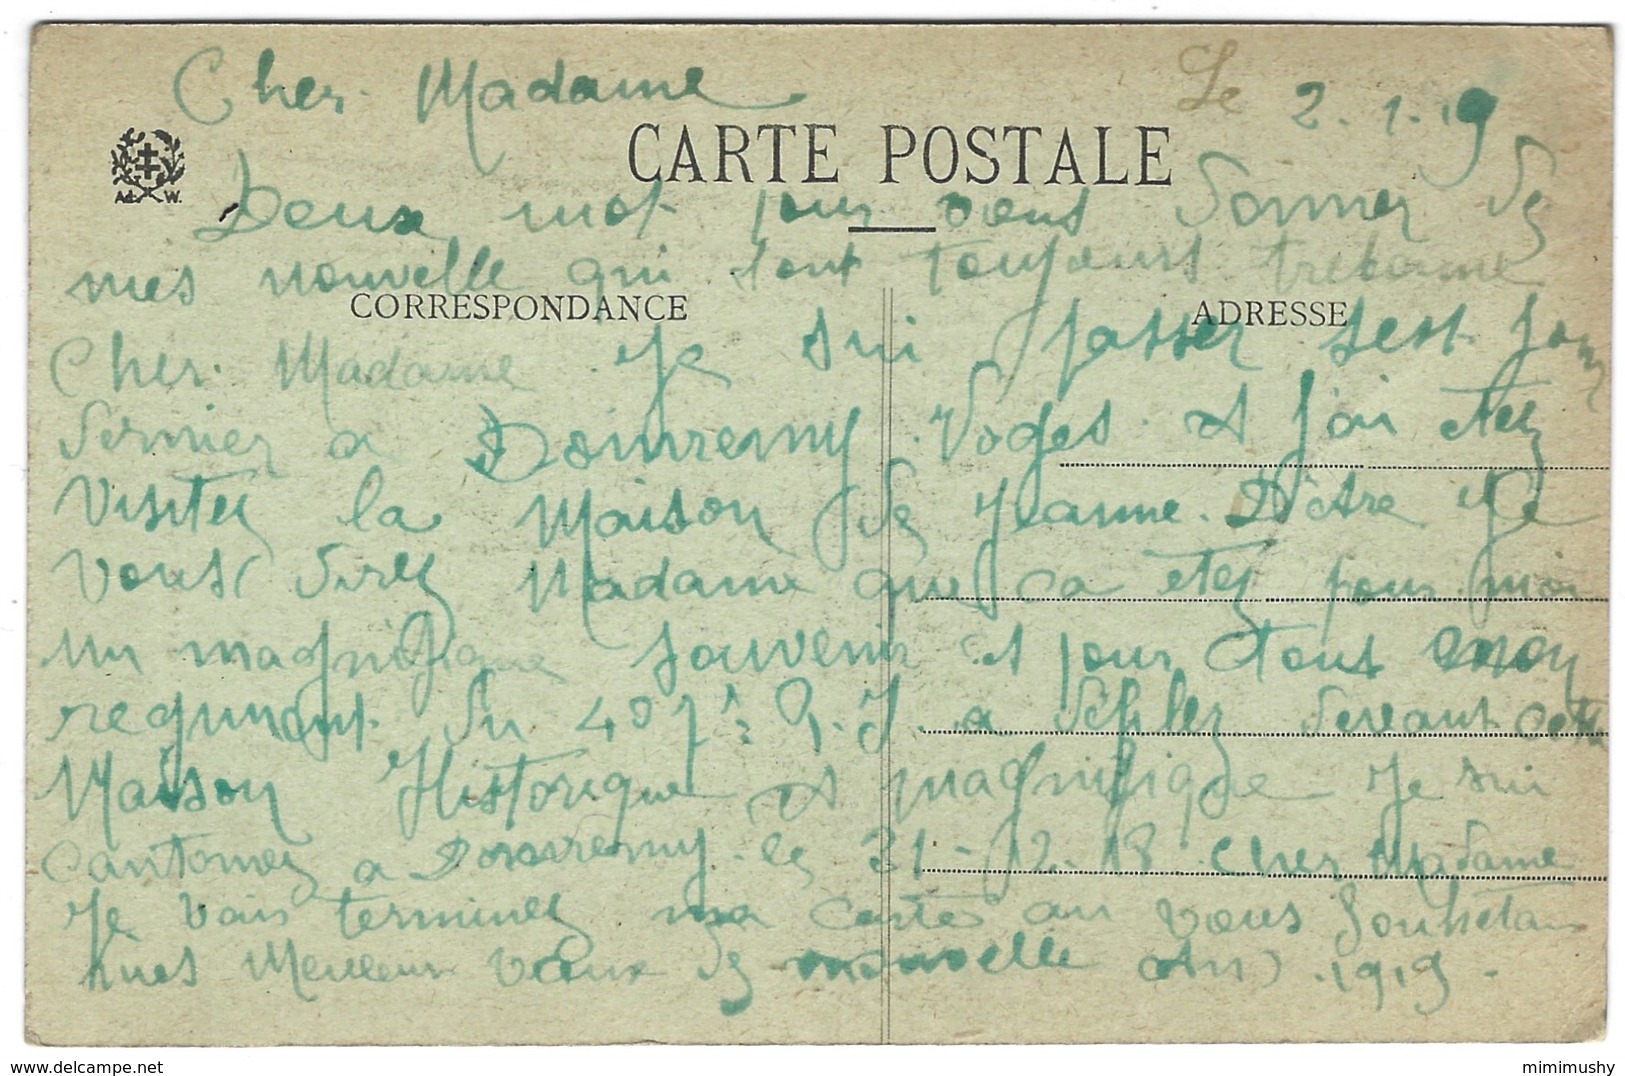 Cher Madame Le 2.1.19
CARTE POSTALE
Ad. W.
Deux mot pour vous donner de
mes nouvelle qui sont toujours trebonne
CORRESPONDANCE ADRESSE
Cher Madame Je sui passer sest jour
dernier a Domremy Voges et j'ai etez
visitez la Maison de Jeanne D'Arc Je
vous direz Madame que ca etez pour moi
un magnifique souvenir et pour tout mon
regiment du 407e R.I. a defilez devant cette
Maison Historique et magnifique Je sui
cantonnez a Domremy le 31-12-18 Cher Madame
Je vais terminez ma carte an vous souhetan
mes Meilleur vœux de nouvelle An 1919.
mimimushy